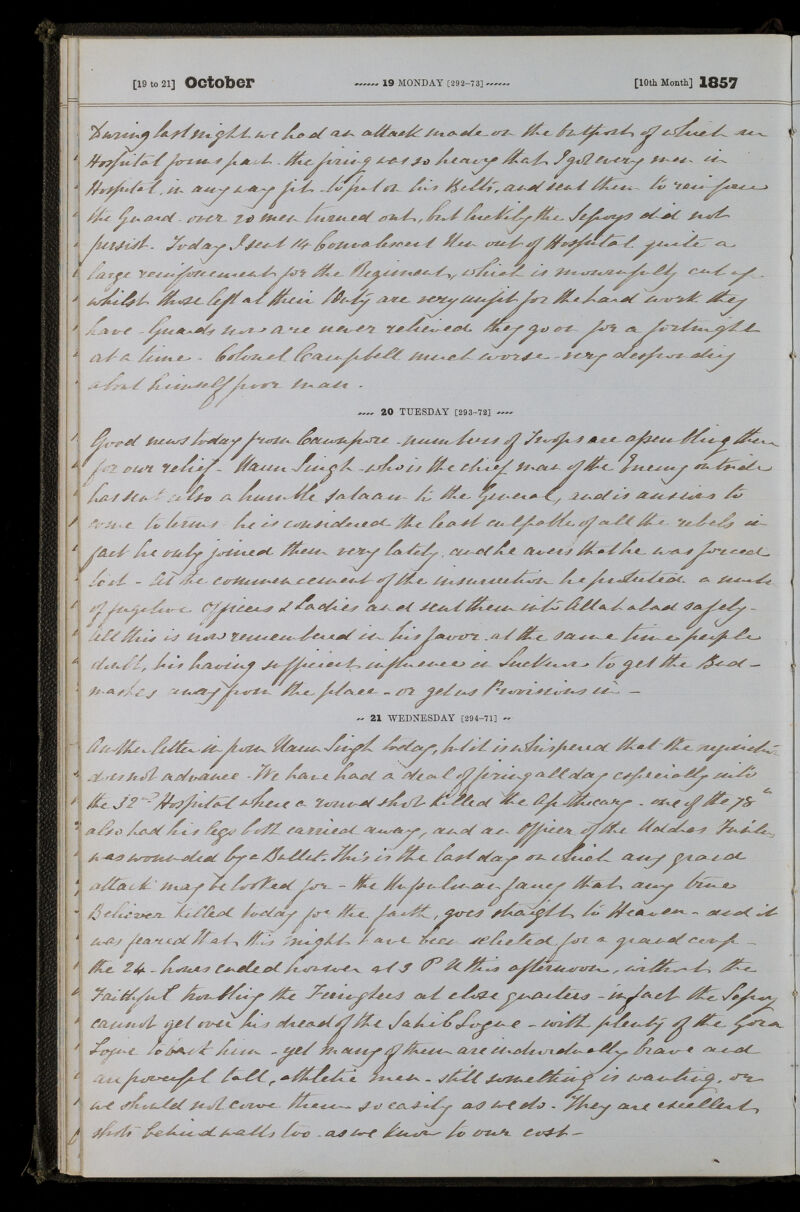 [19 to 21] October 19 MONDAY [292-73] [10th Month] 1857
During last night we had an attack made on the outpost of which our
Hospital forms part - the firing was so heavy that I got every man in
Hospital, in any way fit - to put on his Belts, and sent them to reinforce
the Guard - over 20 men turned out, but luckily the Sepoys did not
persist. Today I sent 14 Convalescent Men out of Hospital quite a
large reinforcement for the Regiment, which is mournfully cut up -
whilst those left at their Duty are very unfit for the hard work they
have - Guards now are never relieved they go on for a fortnight
at a time - Colonel Campbell much worse - very desponding
about himself poor man -
20 TUESDAY [293-72]
Good news today from Cawnpore - numbers of Troops are assembling there
for our relief - Maun Singh - who is the chief man of the Enemy outside
has sent also a humble salaam to the General, and is anxious to
come to terms - he is considered the least culpable of all the rebels in
fact he only joined them very lately, and he avers that he was forced
to it - At the commencement of the insurrection he protected a number
of fugitive officers & Ladies and sent them into Allahabad safely -
All this is now remembered in his favor - at the same time people
doubt, his having sufficient influence in Lucknow to get the Bud-
mashes away from the place - or get us Provisions in -
21 WEDNESDAY [294-71]
Another letter in from Maun Singh today, but it is whispered that the
does not advance - We have had a deal of firing all day especially into
the 32nd Hospital where a round shot killed the Apothecary - one of the 78th
also had his legs both carried away, and an Officer of the Madras Fusiliers
was wounded by a Bullet - This is the last day on which any grand
attack may be looked for - the Mussulman fancy that any true
Believer killed today for the faith, goes straight to Heaven - and it
was feared that this might have been selected for a grand coup -
the 24 - hours ended however at 3 P M this afternoon, without the
Faithful troubling the Feringhees at close quarters - in fact the Sepoy
cannot get over his dread of the Sahib Logue - with plenty of the Gora
Logue to back him - yet many of them are individually brave and
are powerful tall, athletic men - still something is wanting, or
we should not cowe them so easily as we do - They are excellent
shots behind walls too - as we know to our cost -